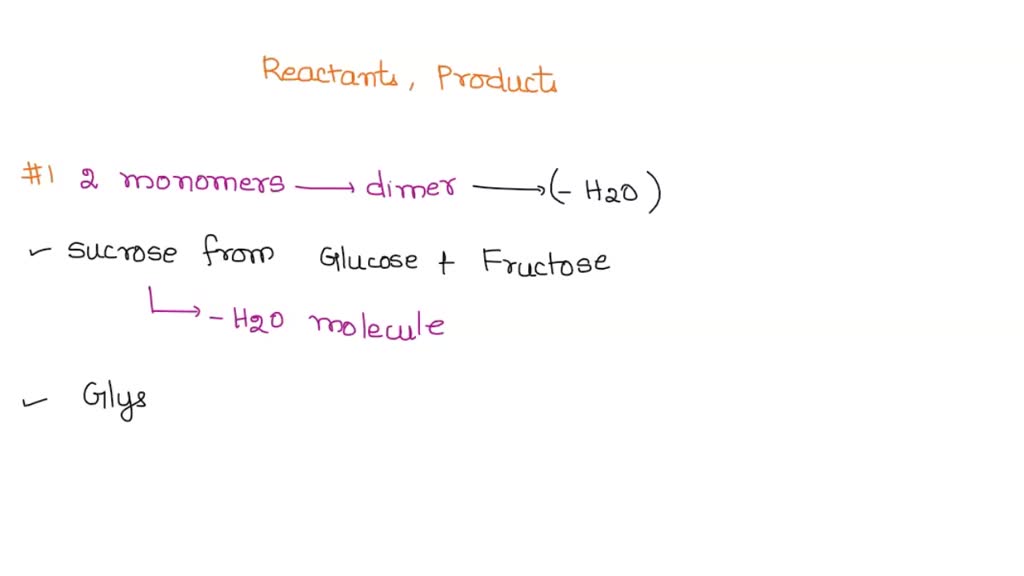 Reactants, Products
#1 2 monomers → dimer → (- H2O)
✓ sucrose from Glucose + Fructose
↳ - H2O molecule
✓ Glys